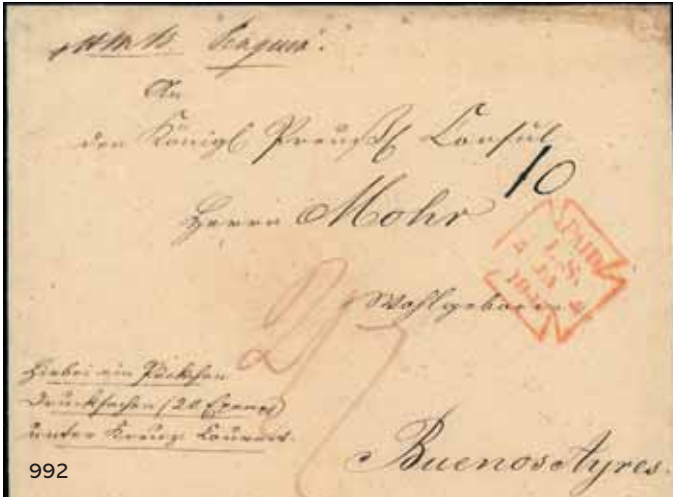 An
den Königl Preuß Consul
10
Herrn Mohr
PAID
Wohlgeboren
27
Hiebei ein Päckchen
Drucksachen (20 Exempl)
unter Kreuz Couvert.
Buenos Ayres.
992